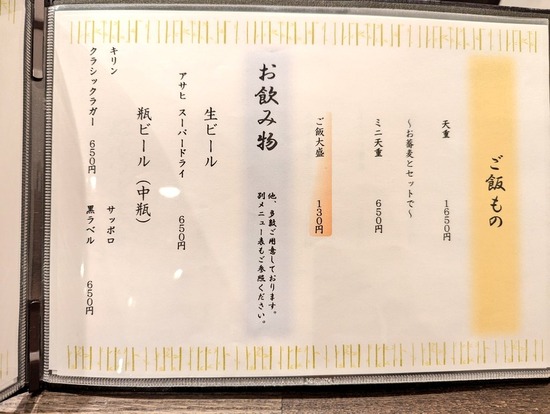 ご飯もの
天重 1650円
〜お蕎麦とセットで〜
ミニ天重 650円
ご飯大盛 130円
お飲み物
他、多数ご用意しております。
別メニュー表もご参照ください。
生ビール
アサヒ スーパードライ 650円
瓶ビール(中瓶)
キリン
クラシックラガー 650円
サッポロ
黒ラベル 650円